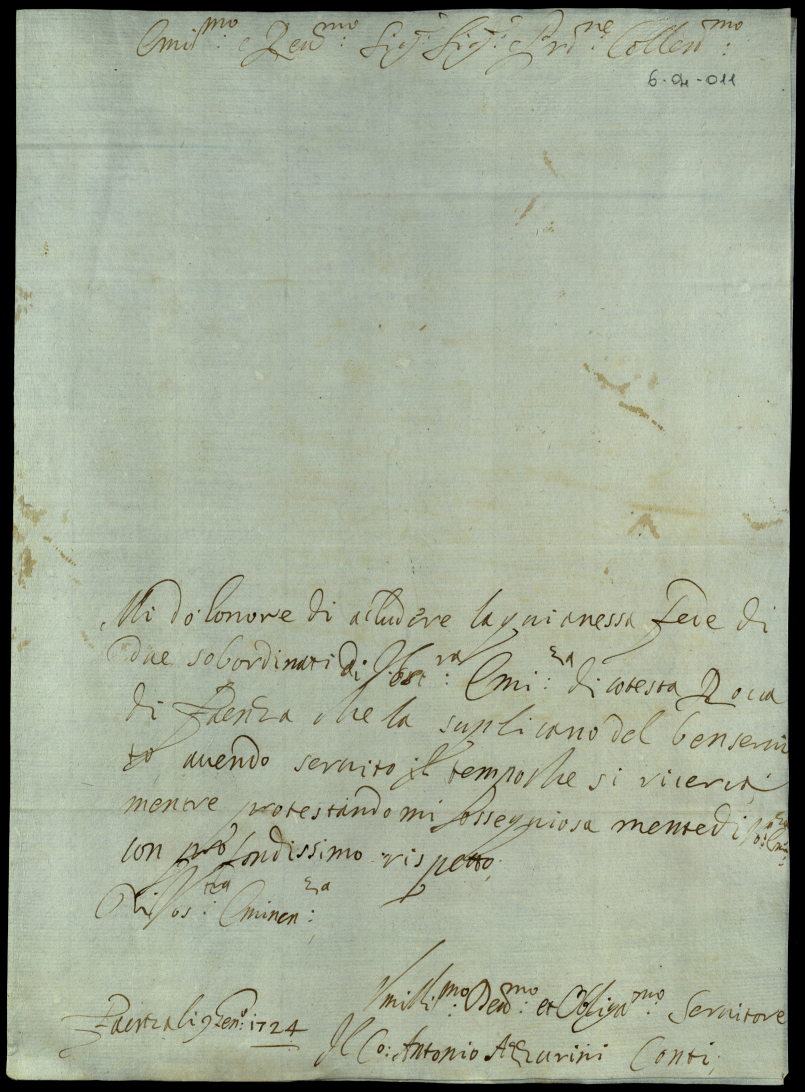 Emi.mo e Reu.mo Sig.r Sig.r e P'rõ.ne Colleu.mo:
6-04-011
Mi dò lonore di acludere la qui anessa Fede di
due sobordinati di Vost.ra: Emi:za di cotesta Rocca
di Faenza che la suplicano del benserui
to, auendo seruito il tempo che si ricerca
mentre protestandomi ossequiosa mente di Vo: Em:za
con profondissimo rispetto,
Di Vos:tra Eminen:za
Faenza li 9 Gen:o 1724
Vmilli:mo Deu:mo et Obliga:mo Seruitore
Il Co: Antonio Azzurini Conti;